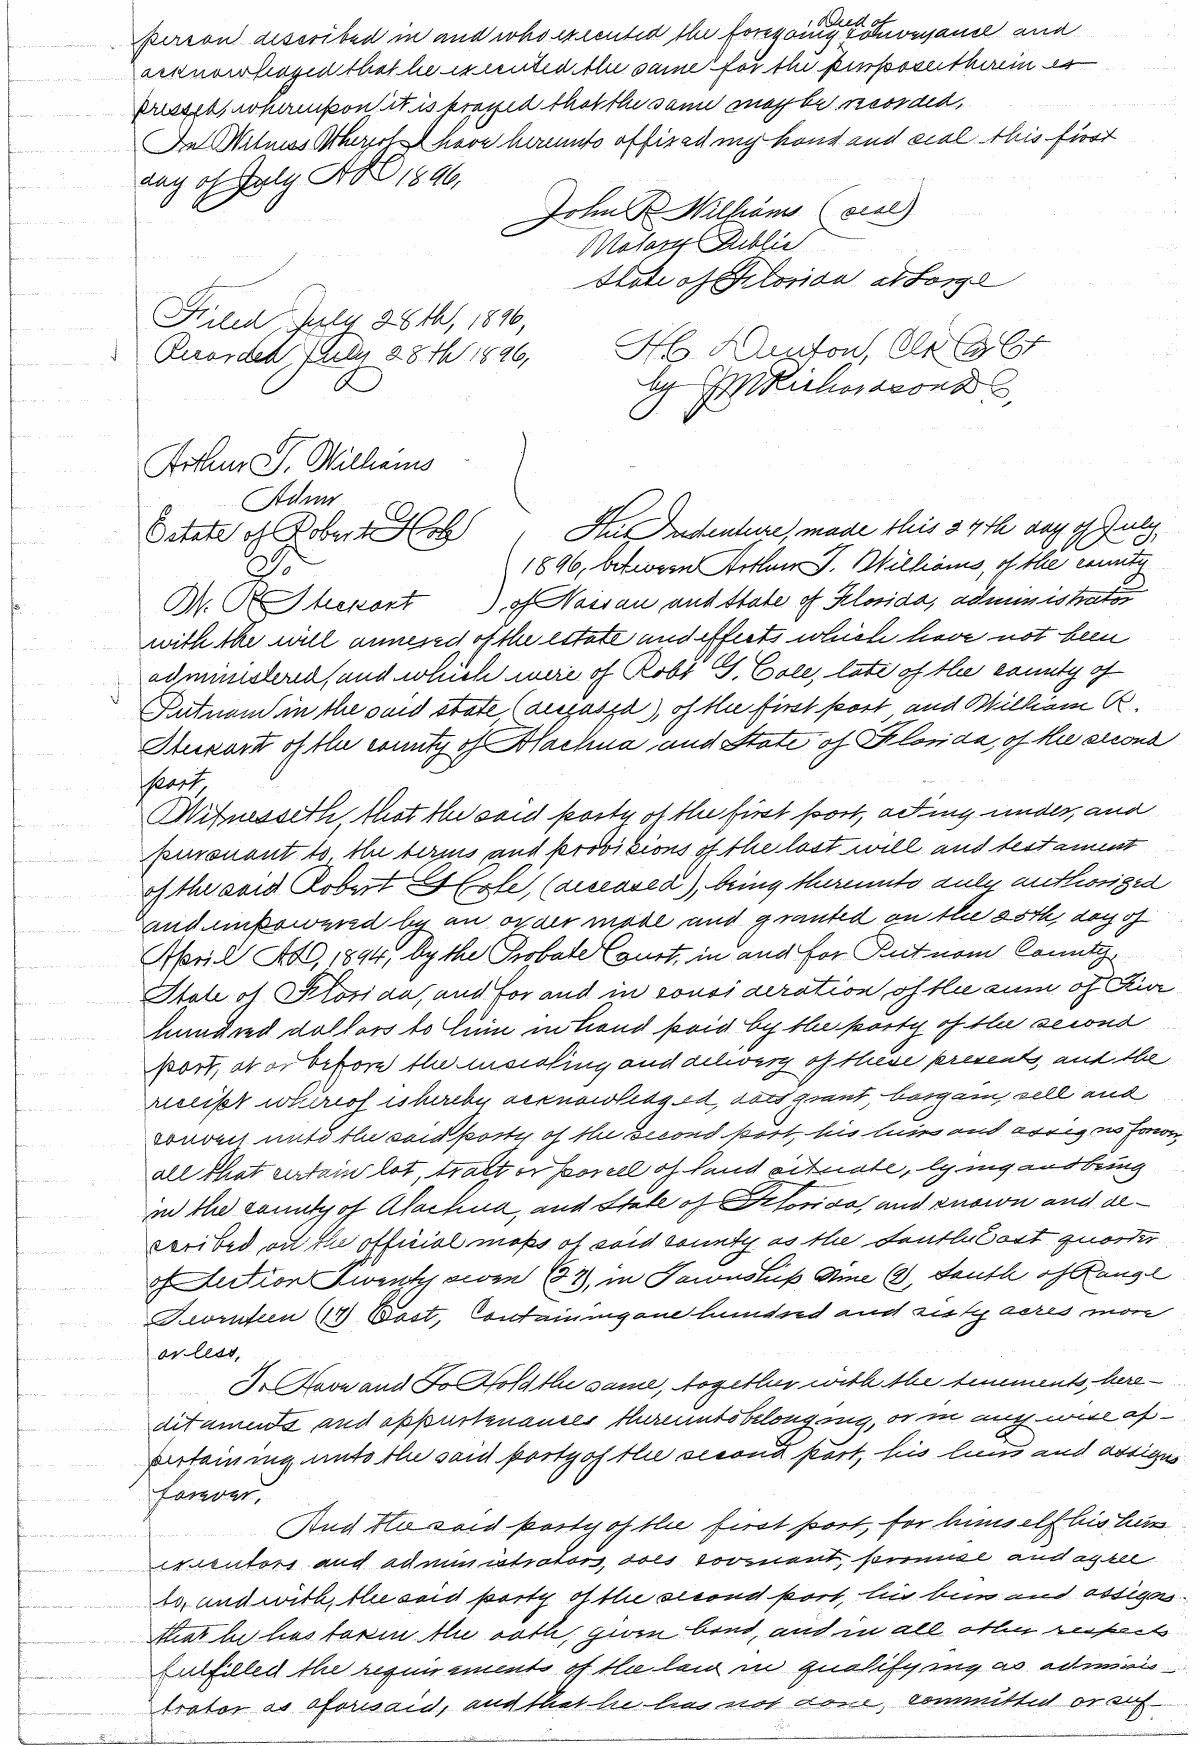 Deed of
person described in and who executed the foregoing conveyance and
acknowledged that he executed the same for the purposes therein ex
pressed, whereupon it is prayed that the same may be recorded.
In Witness Whereof I have hereunto affixed my hand and seal this first
day of July AD 1896,
John R Williams (seal)
Notary Public
State of Florida at Large
Filed July 28th, 1896,
Recorded July 28th 1896,
H C Denton, Clk C Ct
by Richardson D C,
Arthur T. Williams
Admr
Estate of Robert G Cole
To
W. R Steckert
This Indenture, made this 27th day of July,
1896, between Arthur T. Williams, of the county
of Nassau and State of Florida, administrator
with the will annexed of the estate and effects which have not been
administered, and which were of Robt G. Cole, late of the county of
Putnam in the said state (deceased), of the first part and William R.
Steckert of the county of Alachua and State of Florida, of the second
part,
Witnesseth, that the said party of the first part, acting under, and
pursuant to, the terms and provisions of the last will and testament
of the said Robert G Cole, (deceased), being thereunto duly authorized
and empowered by an order made and granted on the 25th, day of
April AD, 1894, by the Probate Court, in and for Putnam County,
State of Florida, and for and in consideration, of the sum of Five
hundred dollars to him in hand paid by the party of the second
part, at or before the ensealing and delivery of these presents, and the
receipt whereof is hereby acknowledged, does grant, bargain, sell and
convey unto the said party of the second part, his heirs and assigns forever,
all that certain lot, tract or parcel of land situate, lying and being
in the county of Alachua, and State of Florida, and known and de-
scribed on the official maps of said county as the South East quarter
of Section Twenty seven (27), in Township Nine (9), South of Range
Seventeen (17) East, Containing one hundred and sixty acres more
or less,
To Have and To Hold the same, together with the tenements, here-
ditaments and appurtenances thereunto belonging, or in any wise ap-
pertaining unto the said party of the second part, his heirs and assigns
forever.
And the said party of the first part, for himself his heirs
executors and administrators, does covenant, promise and agree
to, and with, the said party of the second part, his heirs and assigns
that he has taken the oath, given bond, and in all other respects
fulfilled the requirements of the law in qualifying as adminis-
trator as aforesaid, and that he has not done, committed or suf-